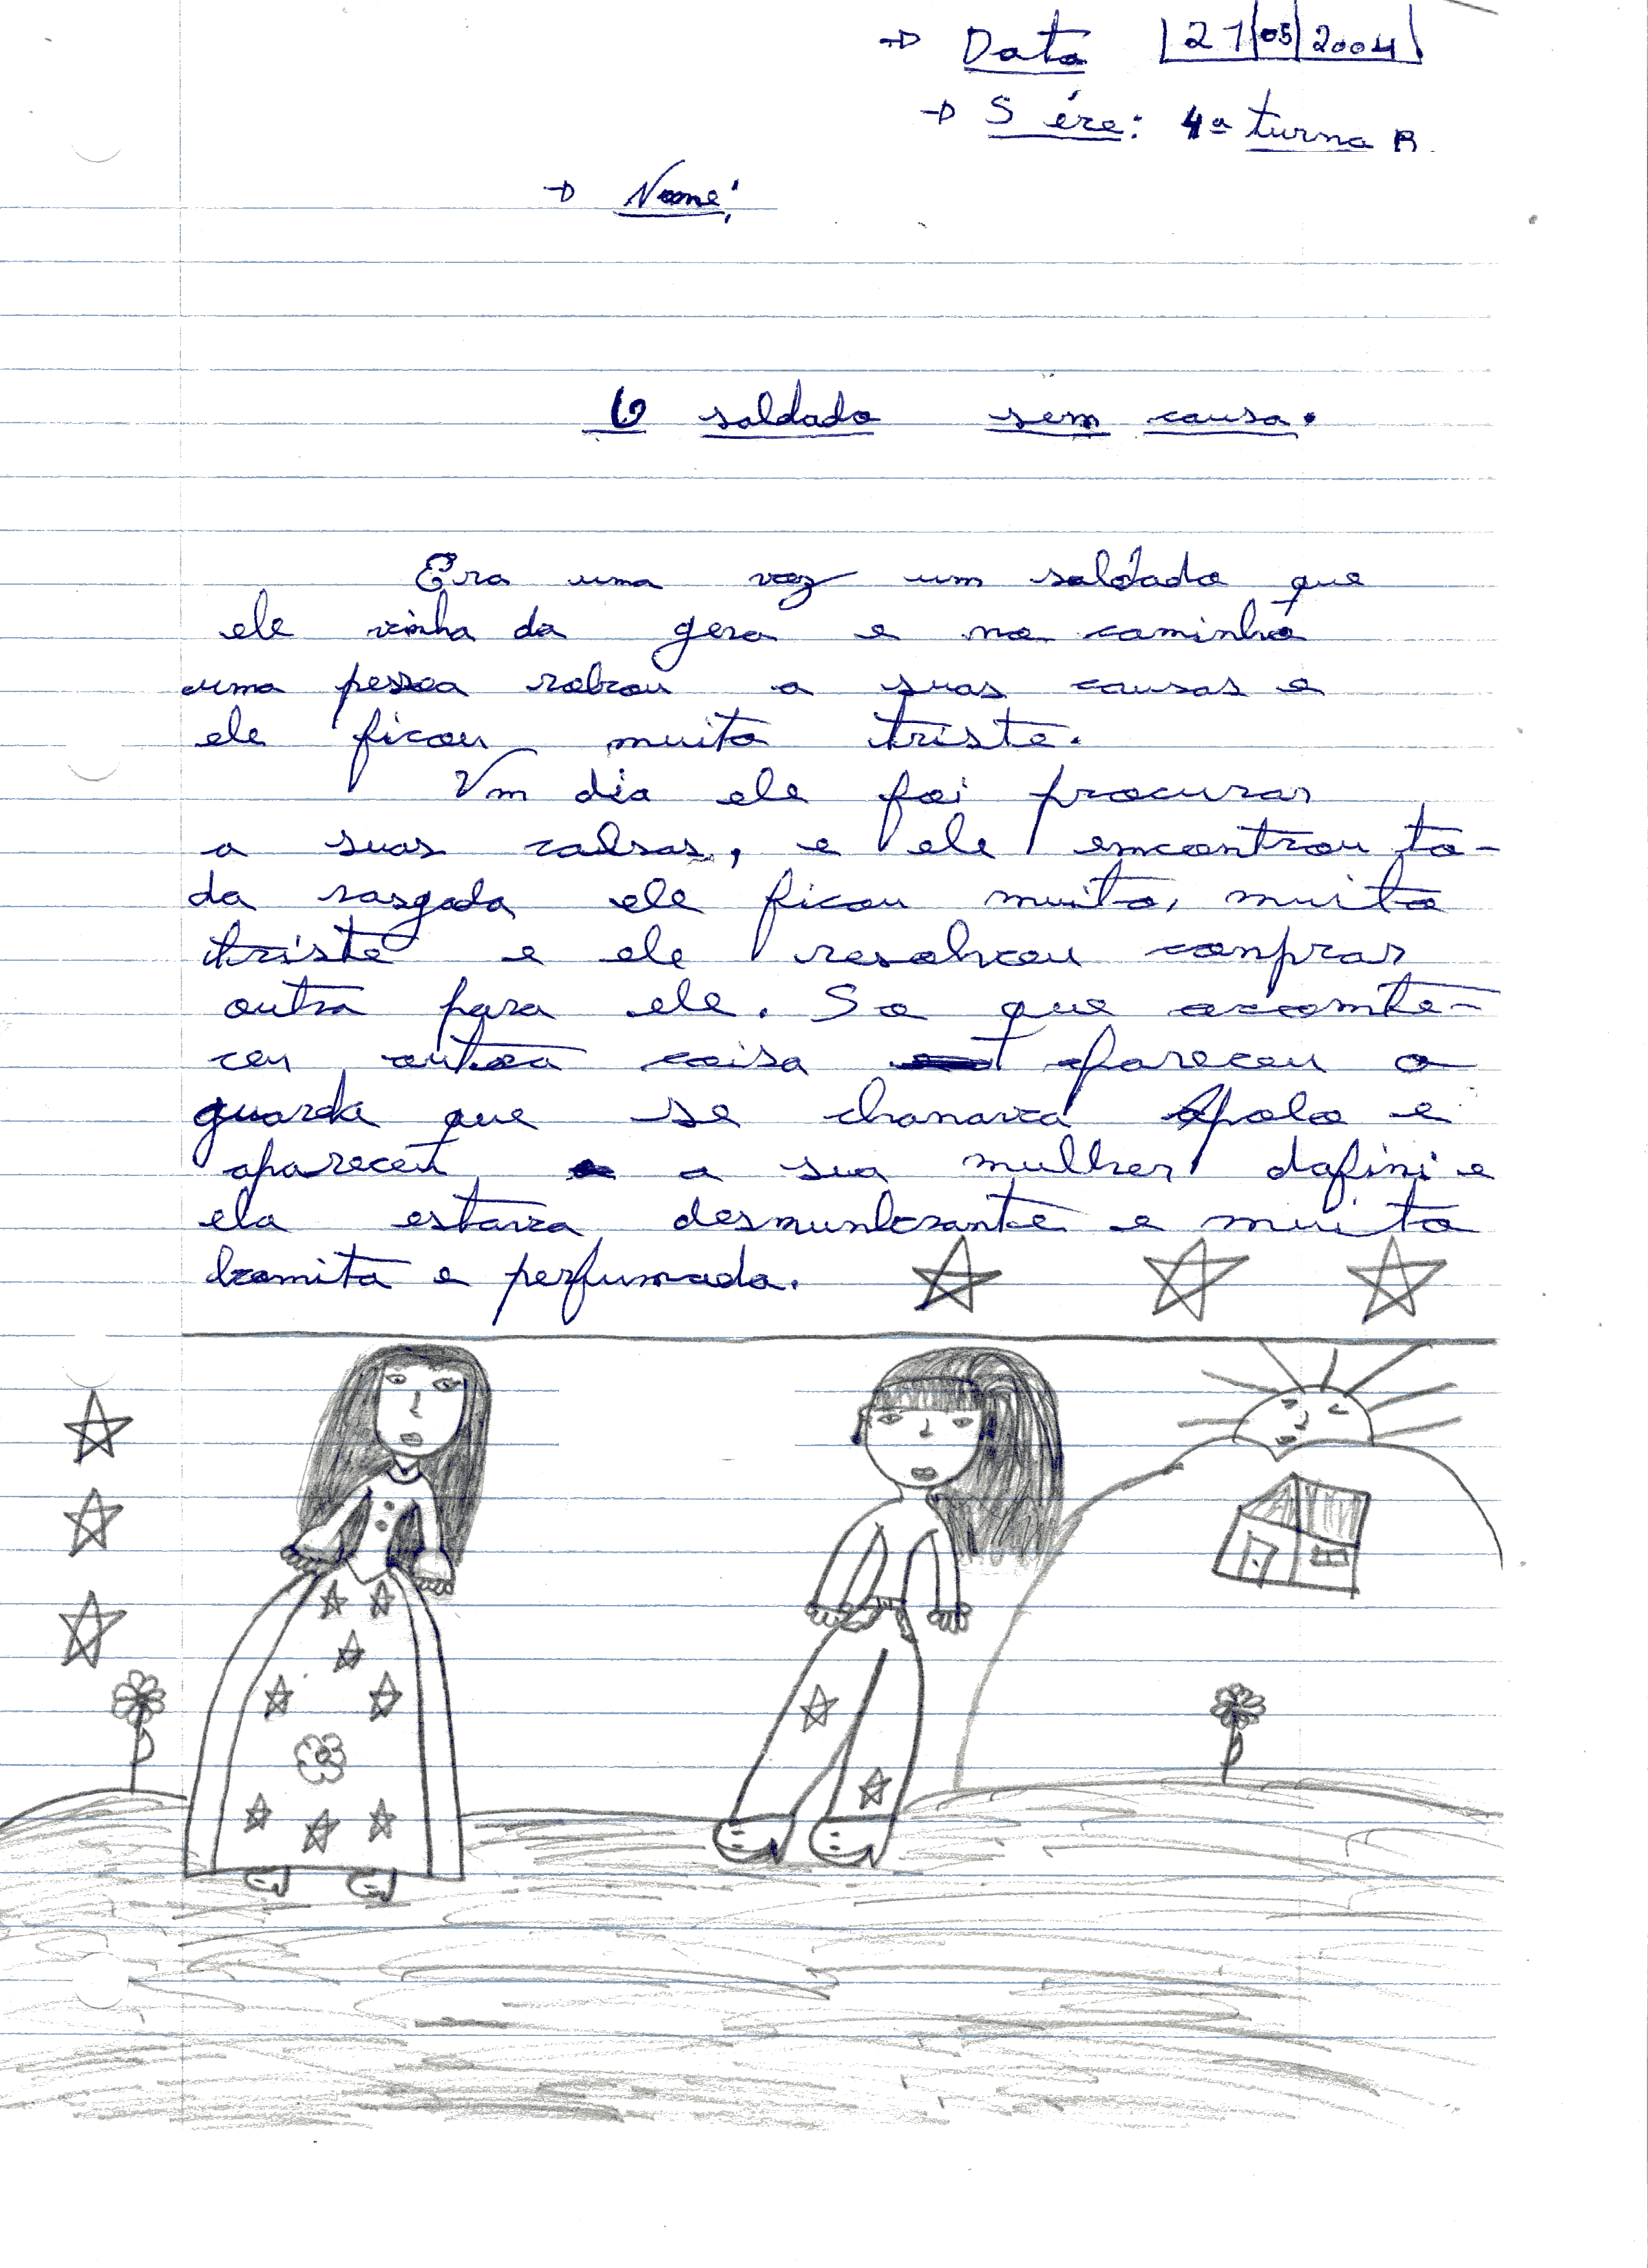 → Data |21|05|2004|
→ Sére: 4ª turna B
→ Nome:
O soldado sem causa.
Era uma vez um soldado que
ele vinha da gera e no caminho
uma pessoa robou a suas causas e
ele ficou muito triste.
Um dia ele foi procurar
a suas calsas, e ele emcontrou to-
da rasgada ele ficou muito, muito
triste e ele resolveu comprar
outra para ele. So que accomte-
ceu outra coisa apareceu o
guarda que se chamava Apolo e
apareceu a sua mulher dafini e
ela estava desmunbrante e muito
bomita e perfumada.